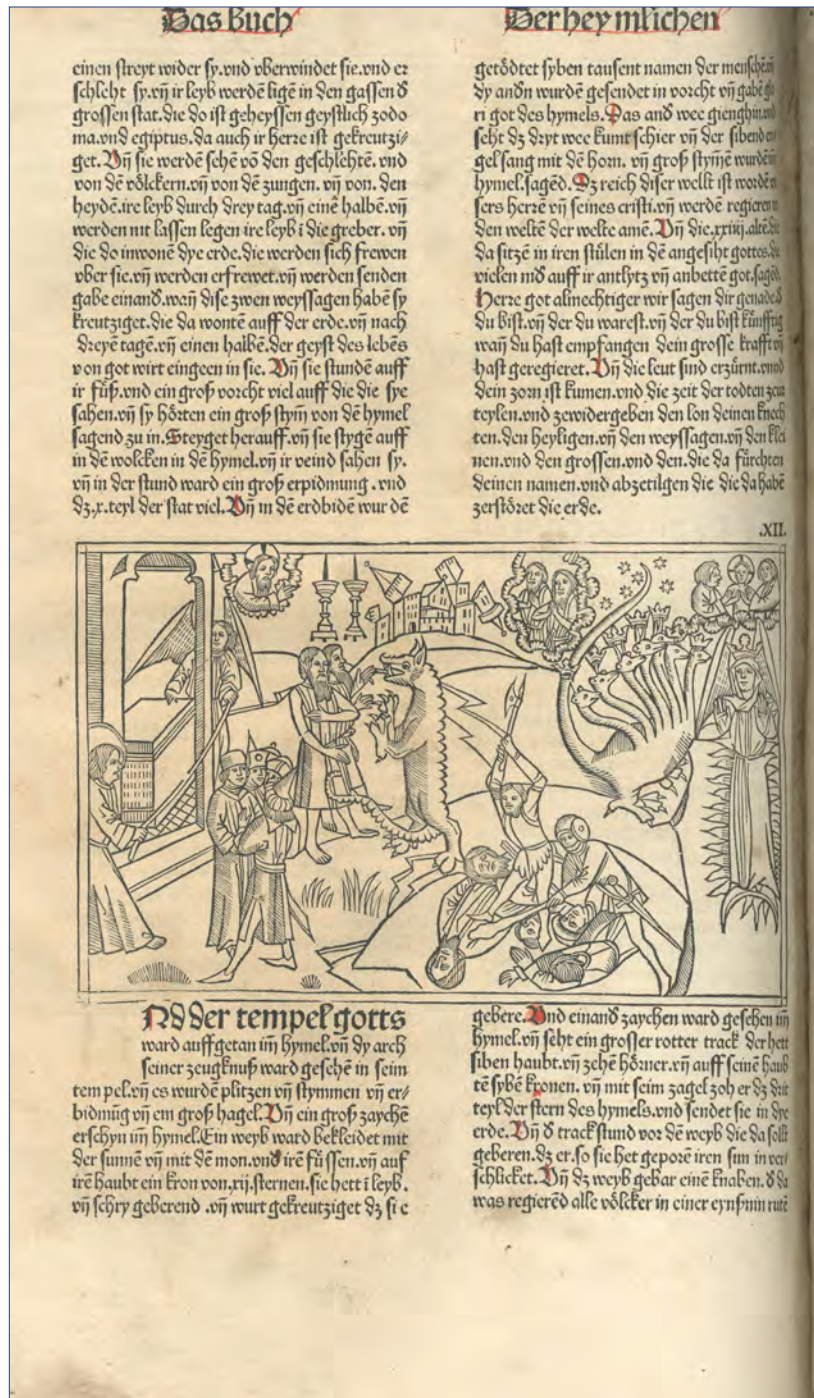 Das Buch
einen streyt wider sy.vnd vberwindet sie.vnd er
schlecht sy.vñ ir leyb werdē ligē in den gassen d̕
grossen stat.die do ist geheyssen geystlich zodo
ma.vnd egiptus.da auch ir herre ist gekreutzi⸗
get.Vñ sie werdē sehē vō den geschlehtē.vnd
von dē völckern.vñ von dē zungen.vñ von.den
heydē.ire leyb durch drey tag.vñ einē halbē.vñ
werden nit lassen legen ire leyb ī die greber.vñ
die do inwonē dye erde.die werden sich frewen
vber sie.vñ werden erfrewet.vñ werden senden
gabe einand̕.wañ dise zwen weyssagen habē sy
kreutziget.die da wontē auff der erde.vñ nach
dreyē tagē.vñ einen halbē.der geyst des lebēs
von got wirt eingeen in sie.Vñ sie stundē auff
ir füß.vnd ein groß vorcht viel auff die die sye
sahen.vñ sy hörten ein groß stym̄ von dē hymel
sagend zu in.Steyget herauff.vñ sie stygē auff
in dē wolcken in dē hymel.vñ ir veind sahen sy.
vñ in der stund ward ein groß erpidmung.vnd
dz.x.teyl der stat viel.Vñ in dē erdbidē wur dē
Der heymlichen
getödtet syben tausent namen der menschē.vñ
dy andn̄ wurdē gesendet in vorcht vñ gabē glo
ri got des hymels.Das and̕ wee gieng hin.vnd
seht dz dryt wee kumt schier vñ der sibend en
gel sang mit dē horn.vñ groß stym̄e wurdē im
hymel.sagēd.Dz reich diser wellt ist wordē
sers herrē vñ seines cristi.vñ werdē regieren
den weltē der welte amē.Vñ die.xxiiij.altē.die
da sitzē in iren stülen in dē angesiht gottes.die
vielen nid̕ auff ir antlytz vñ anbettē got.sagēd.
Herre got almechtiger wir sagen dir genade.d̕
du bist.vñ der du warest.vñ der du bist künfftig
wañ du hast empfangen dein grosse krafft.vñ
hast geregieret.Vñ die leut sind erzürnt.vnnd
dein zorn ist kumen.vnd die zeit der todten zeur
teylen.vnd zewidergeben den lon deinen knech
ten.den heyligen.vñ den weyssagen.vñ den klei
nen.vnd den grossen.vnd den.die da fürchten
deinen namen.vnd abzetilgen die die da habē
zerstöret die erde.
.XII.
Nd der tempel gotts
ward auffgetan im̄ hymel.vñ dy arch
seiner zeugknuß ward gesehē in seim
tem pel.vñ es wurdē plitzen vñ stymmen vñ er⸗
bidmūg vñ ein groß hagel.Vñ ein groß zaychē
erschyn im̄ hymel.Ein weyb ward bekleidet mit
der sunnē vñ mit dē mon.vnd̕ irē füssen.vñ auf
irē haubt ein kron von.xij.sternen.sie hett ī leyb.
vñ schry geberend.vñ wurt gekreutziget dz si e
gebere.Vnd einand̕ zaychen ward gesehen im̄
hymel.vñ seht ein grosser rotter track der hett
siben haubt.vñ zehē hörner.vñ auff seinē haub
tē sybē kronen.vñ mit seim zagel zoh er dz drit
teyl der stern des hymels.vnd sendet sie in dye
erde.Vñ d̕ track stund vor dē weyb die da sollt
geberen.dz er.so sie het geporē iren sun in ver⸗
schlicket.Vñ dz weyb gebar einē knaben.d̕ da
was regierēd alle völcker in einer eysnnin rutē